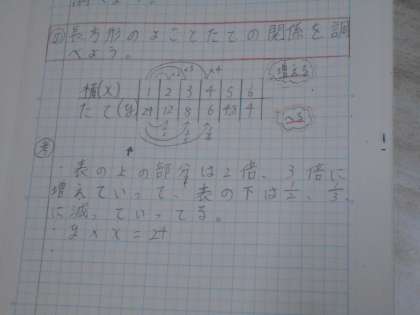 め 長方形のよことたての関係を調
べよう。
×2 ×3 ×4
横(x) 1 2 3 4 5 6 増える
たて(y) 24 12 8 6 4.8 4 へる
考
・表の上の部分は2倍、3倍に
増えていって、表の下は1/2、1/3、
に減っていってる。
・y×x=24